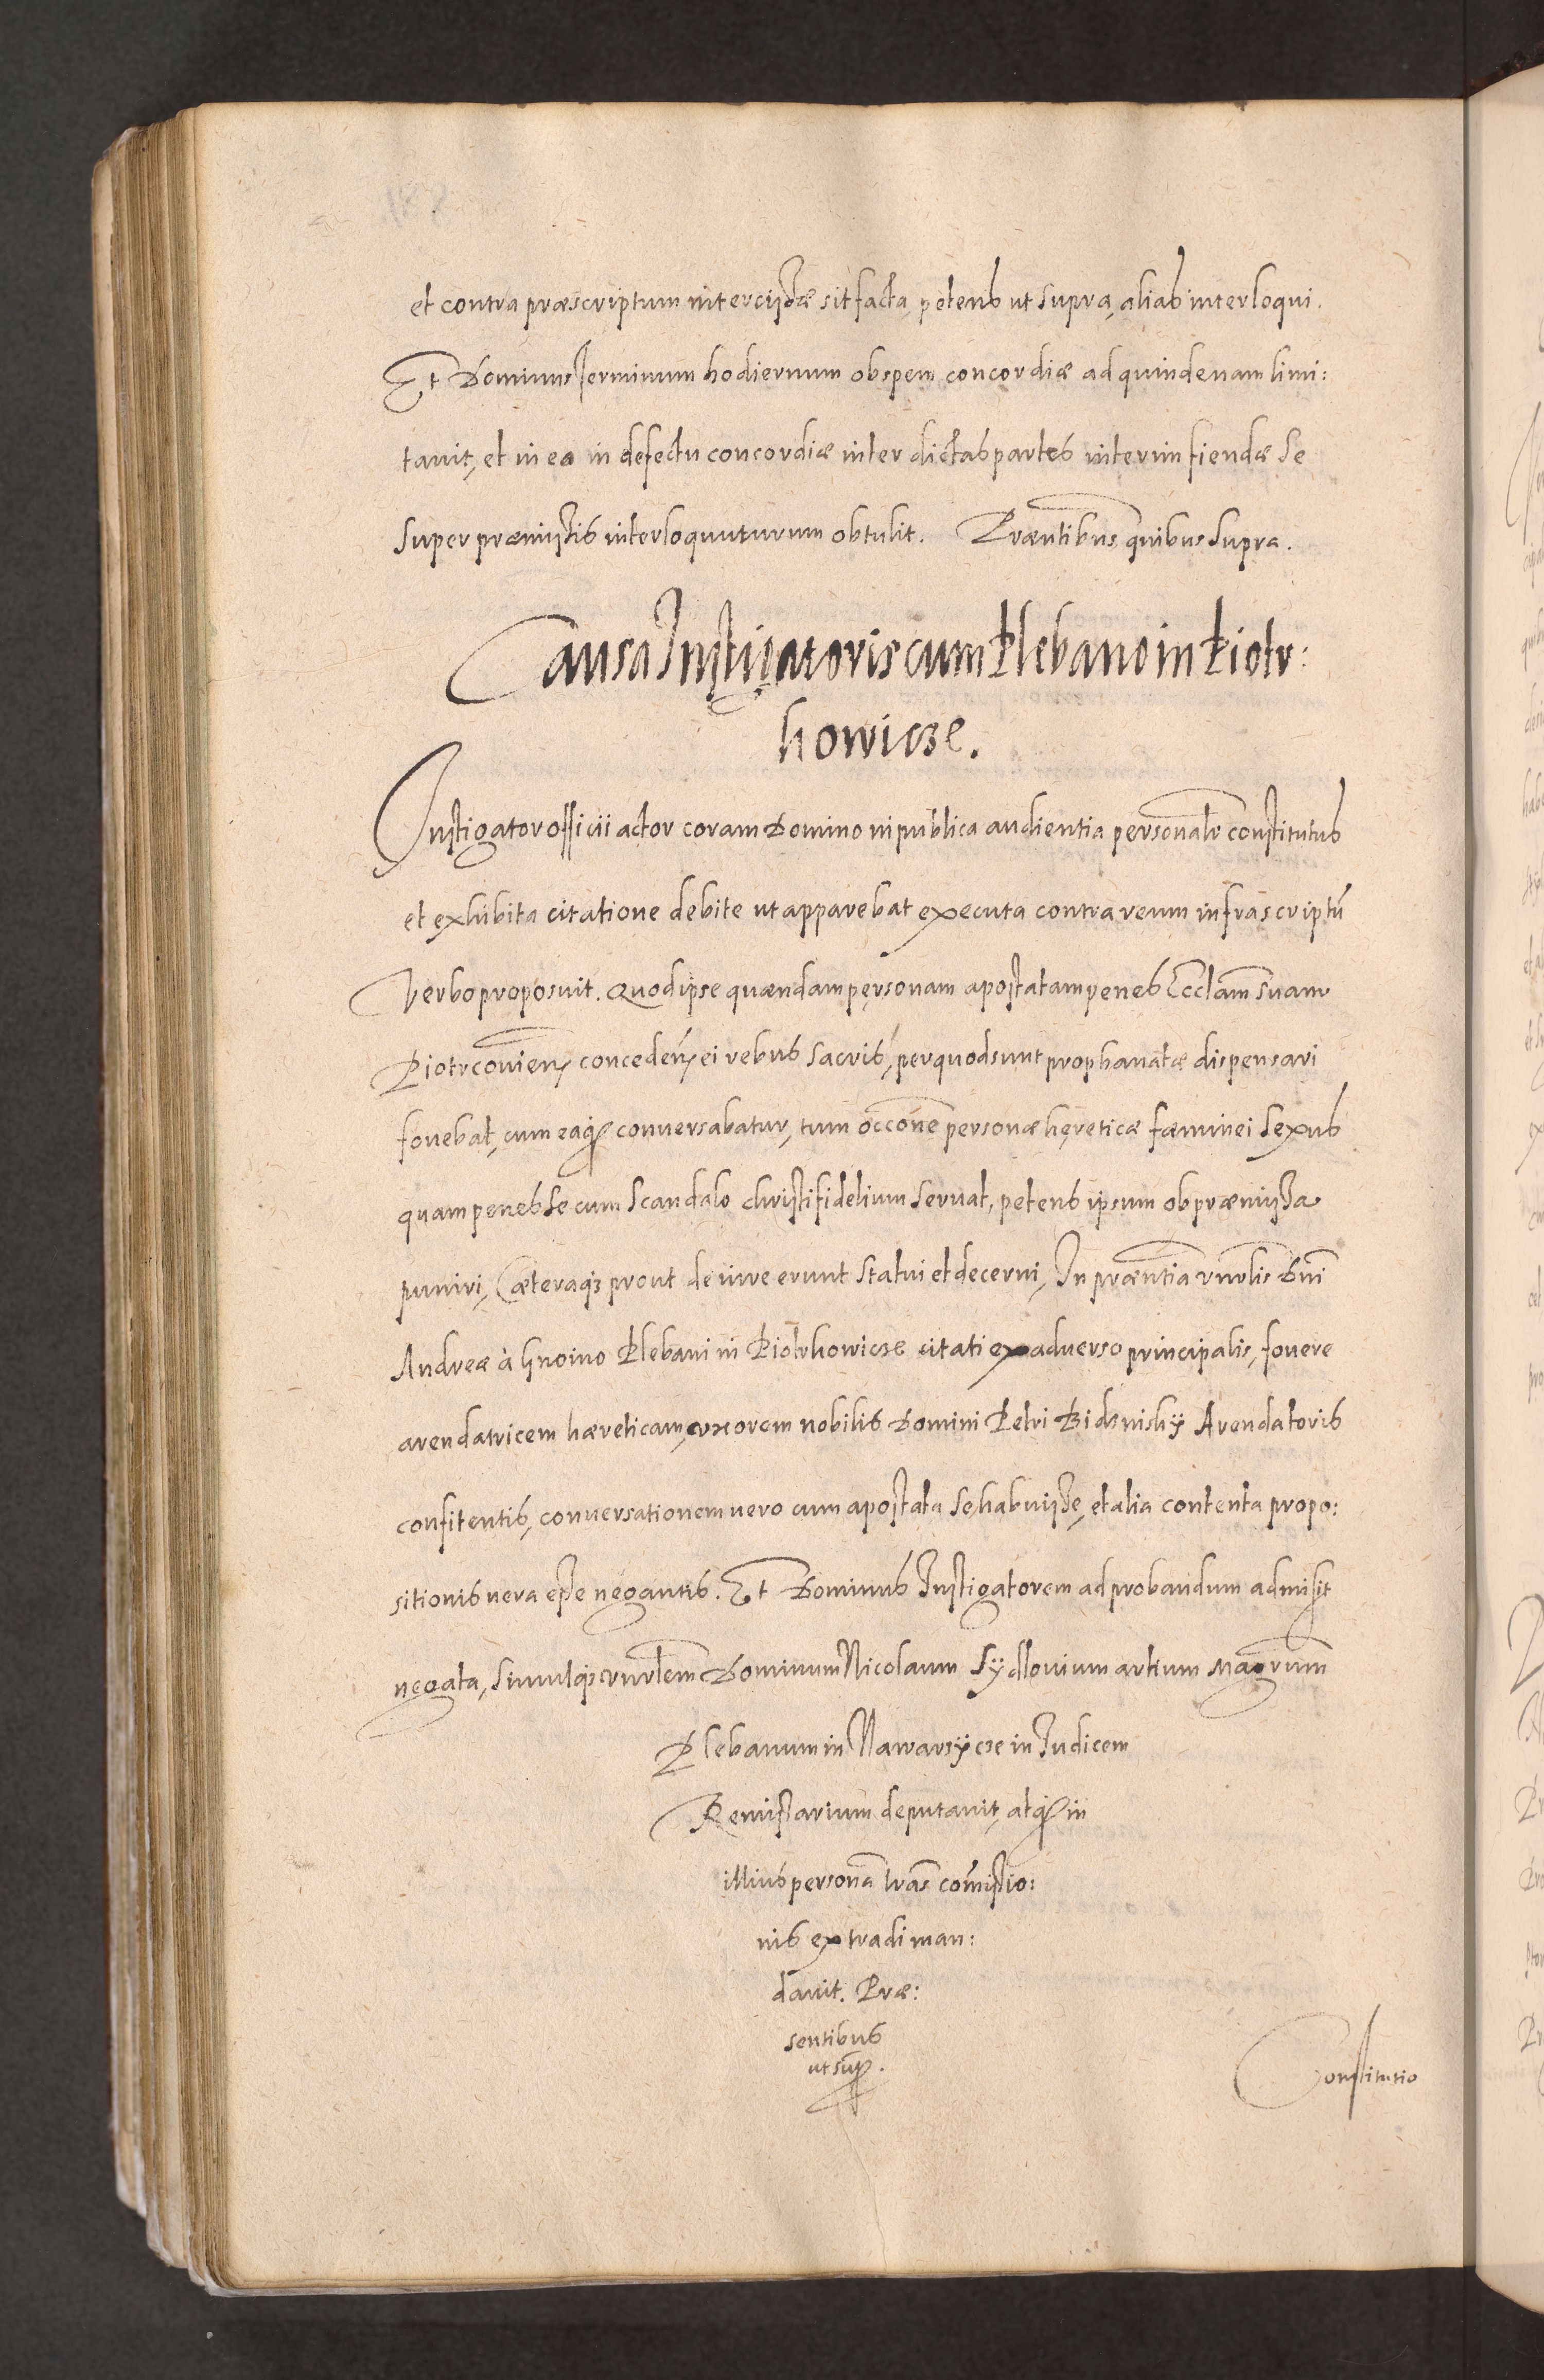 et contra præscriptum intercisæ sit facta, petens ut supra, alias interloqui.
Et Dominus terminum hodiernum ob spem concordiæ ad quindenam limi:
tavit, et in ea in defectu concordiæ inter dictas partes interim fiendæ se
super præmissis interloquuturum obtulit. Præntibus quibus supra.
Causa Instigatoris cum Plebano in Piotr:
kowicze.
Instigator officii actor coram Domino in publica audientia personalr constitutus
et exhibita citatione debite ut apparebat executa contra reum infrascriptū
verbo proposuit. Quod ipse quændam personam apostatam penes Eccłam suam
Piotrcovien concedeń ei rebus sacris, per quod sunt prophanatæ dispensari
fovebat, cum eaq̃ conversabatur, tum occõne personæ hęreticæ fæminei sexus
quam penes se cum scandalo christifidelium servat, petens ipsum ob præmissa
puniri, Cæteraq̃ prout de iure erunt statui et decerni, In præntia vnrlis Dni
Andreæ à Gnoino Plebani in Piotrkowicze citati ex adverso principalis, fovere
arendatricem hæreticam, uxorem nobilis Domini Petri Bidzinskÿ Arendatoris
confitentis, conversationem vero cum apostata se habuisse, et alia contenta propo:
sitionis vera esse negantis. Et Dominus Instigatorem ad probandum admisit
negata, simulq̃ vnrlem Dominum Nicolaum Sÿdlovium artium Magrum
Plebanum in Nawarzÿcze in Iudicem
Remissarium deputavit, atq̃ in
illius personã lras comissio:
nis extradi man:
davit. Præ:
sentibus
ut sup.
Constitutio